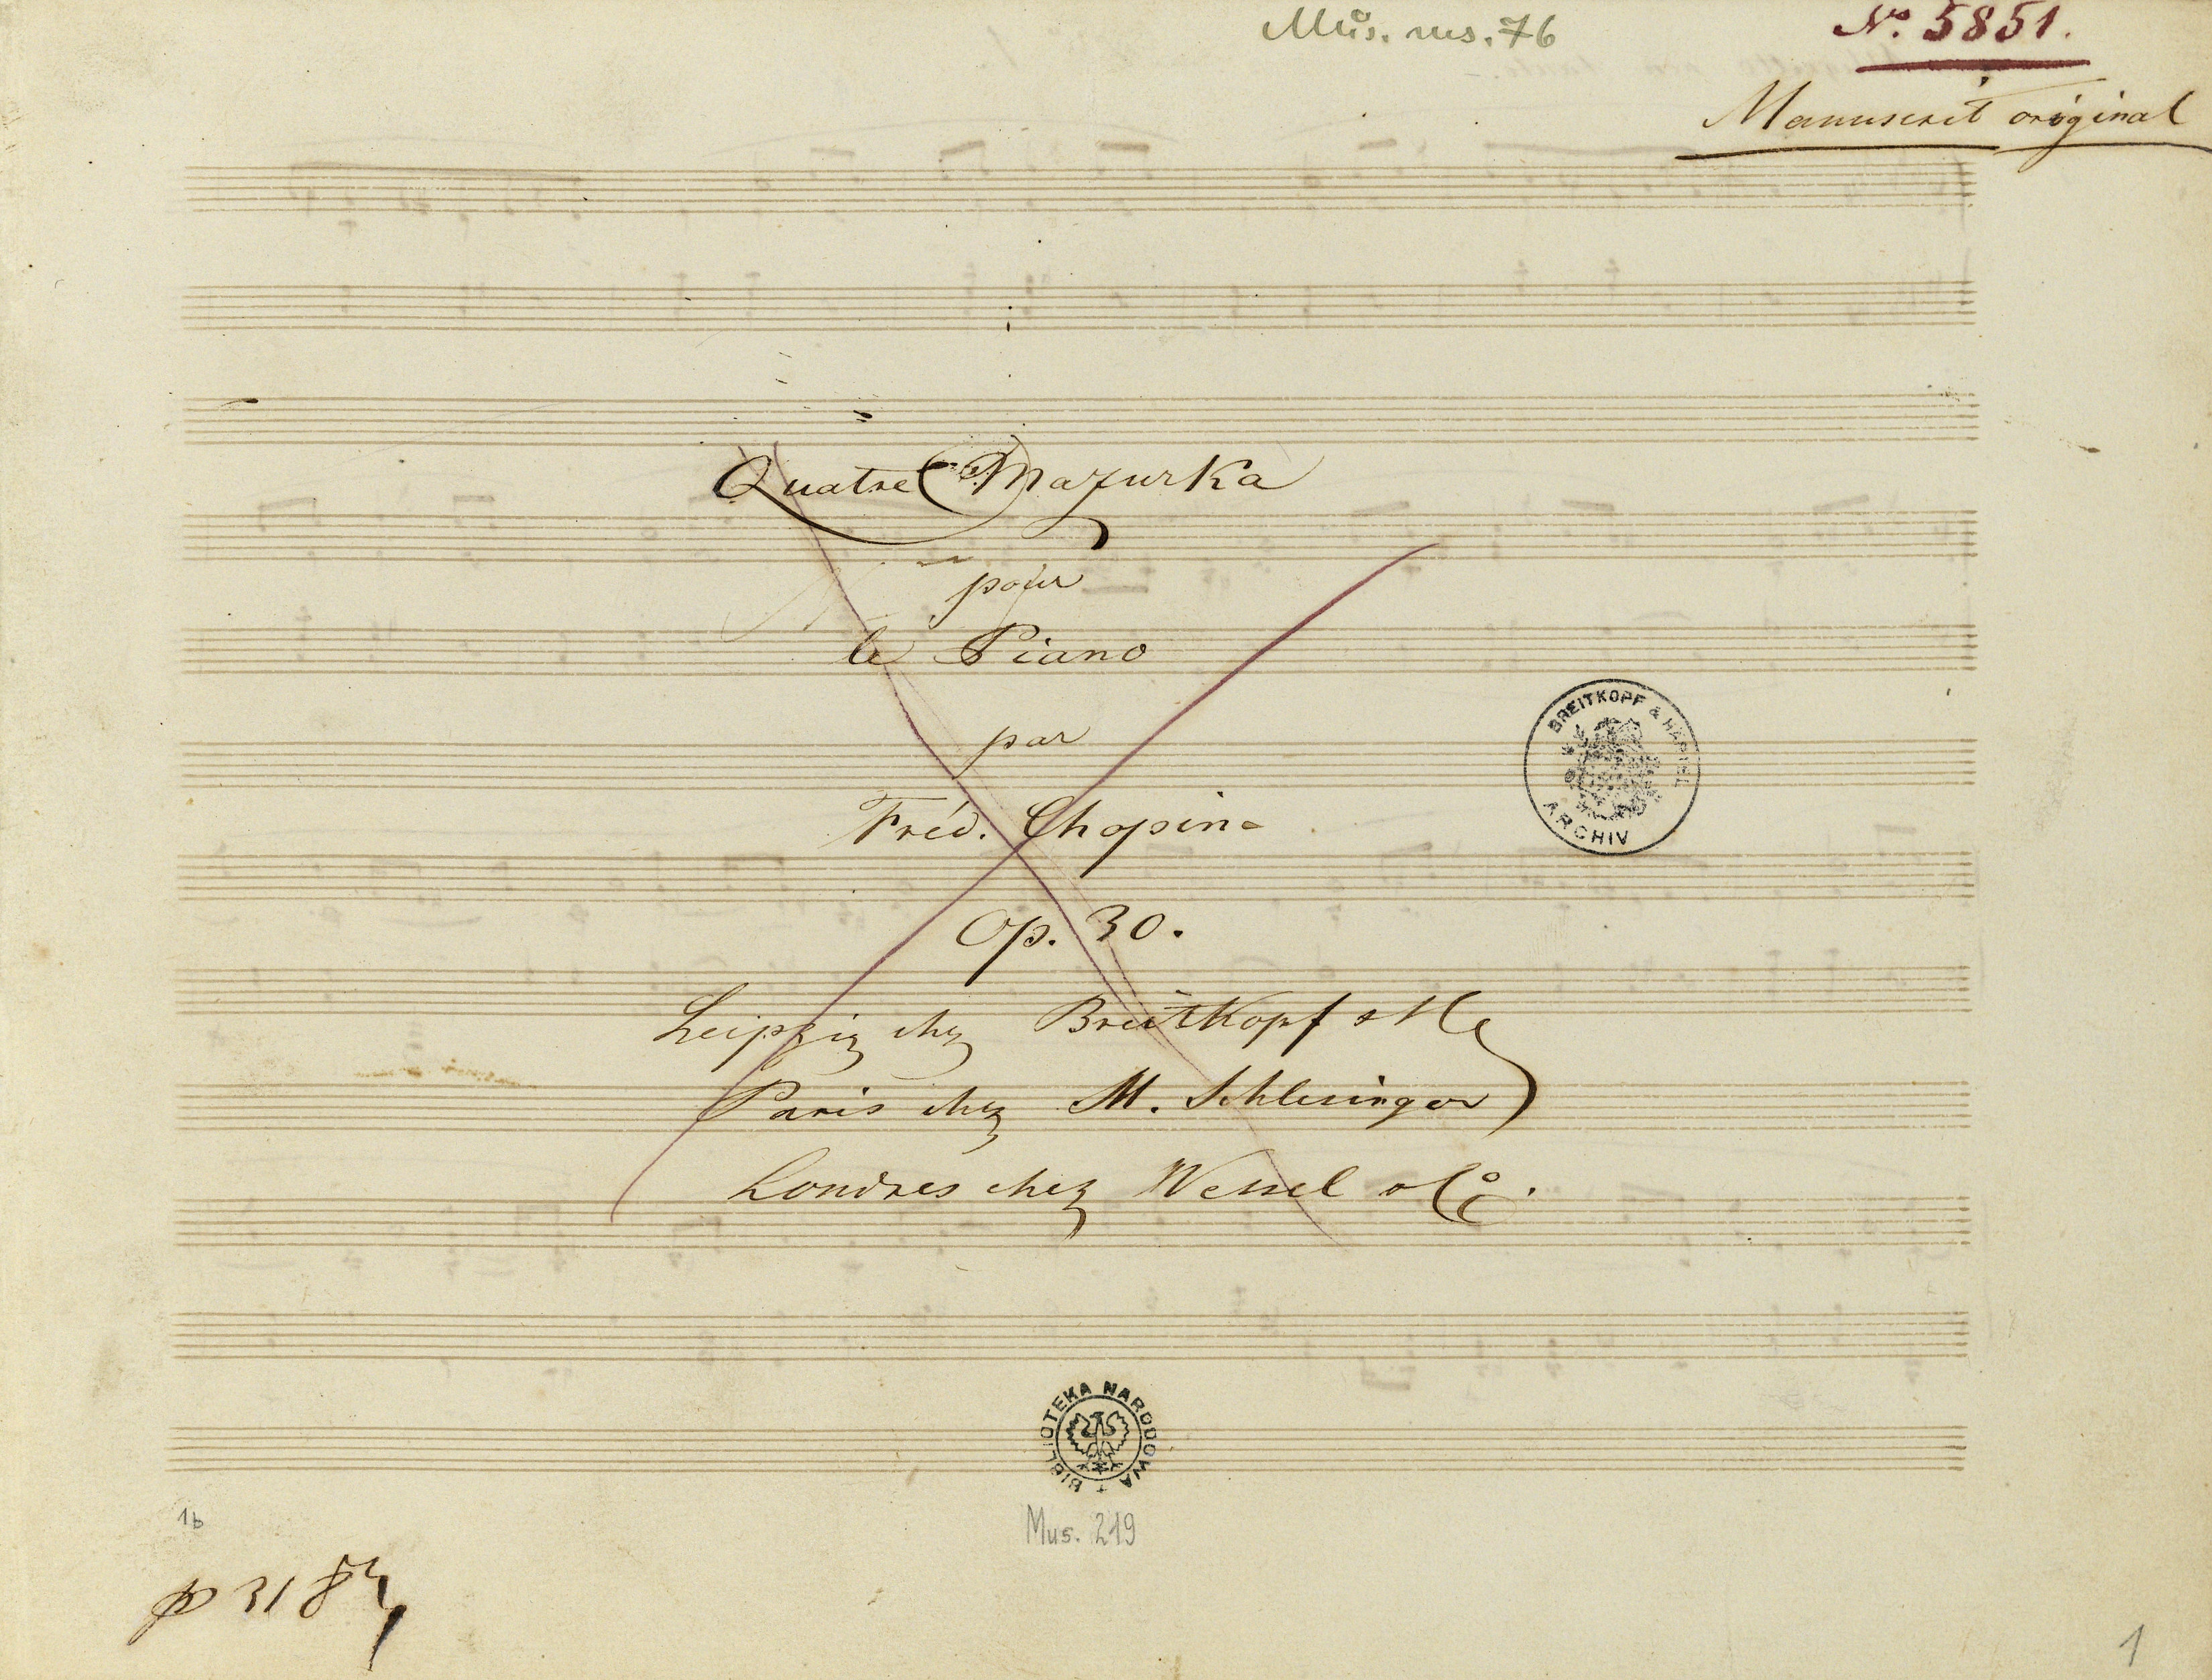 Mus. ms. 76
No. 5851.
Manuscrit original
Quatre Mazurka
pour
le Piano
par
Fréd. Chopin
Op. 30.
Leipzig chez Breitkopf & H
Paris chez M. Schlesinger
Londres chez Wessel & Co.
BREITKOPF & HÄRTEL
ARCHIV
BIBLIOTEKA NARODOWA
Mus. 219
1b
1